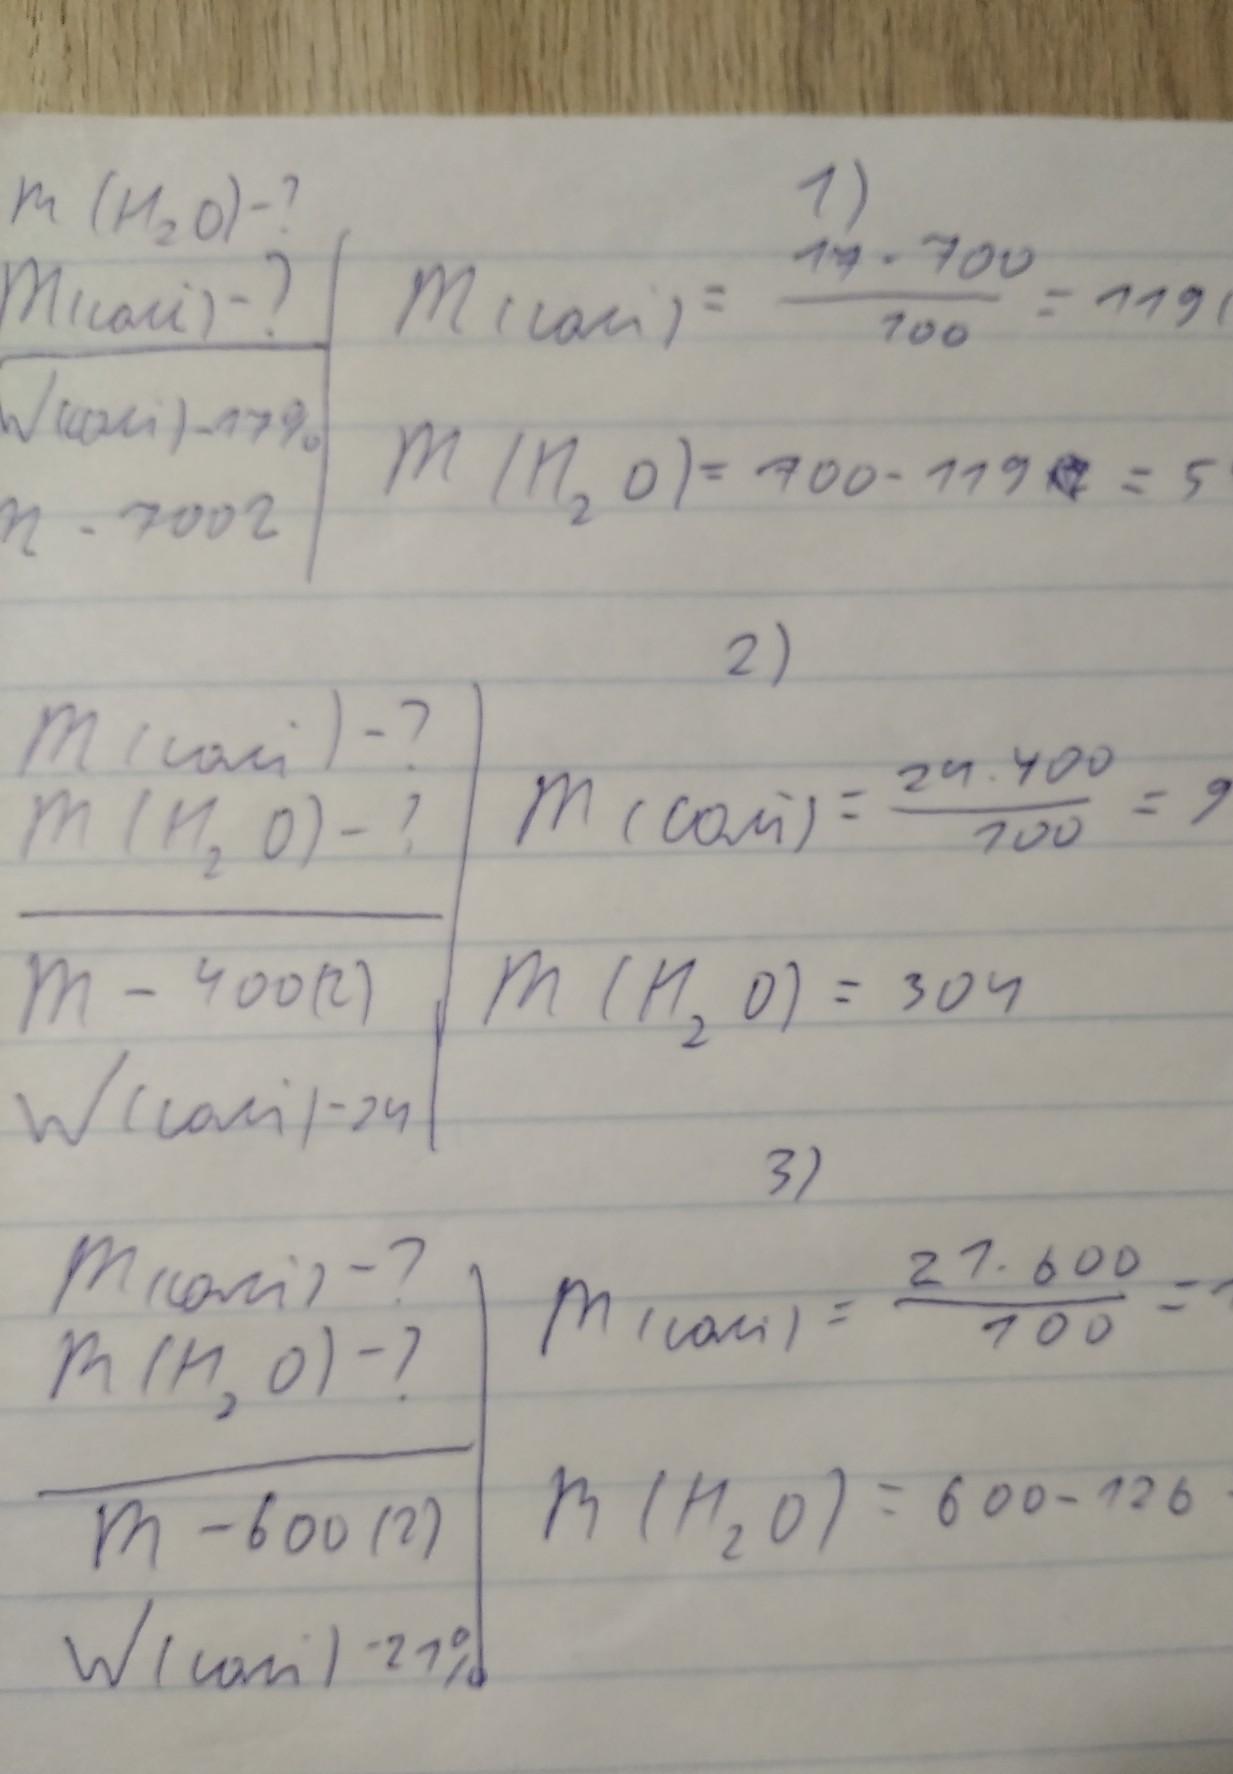 1)
m (H₂O) - ?
m(солі) - ?
W(солі) - 17%
m - 700г
m(солі) = 17 · 700 / 100 = 119(
m (H₂O) = 700 - 119 = 5
2)
m (солі) - ?
m (H₂O) - ?
m - 400(г)
W(солі) - 24
m (солі) = 24 · 400 / 100 = 9
m (H₂O) = 304
3)
m(солі) - ?
m (H₂O) - ?
m - 600(г)
W(солі) - 21%
m (солі) = 21 · 600 / 100 = 1
m (H₂O) = 600 - 126